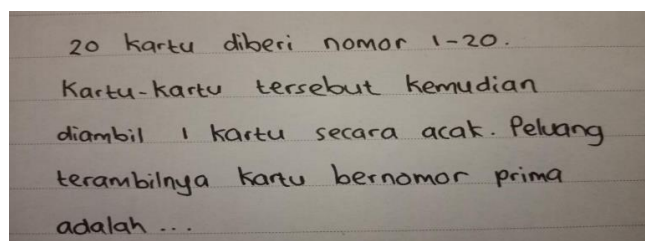 20 kartu diberi nomor 1-20.
Kartu-kartu tersebut kemudian
diambil 1 kartu secara acak. Peluang
terambilnya kartu bernomor prima
adalah ...